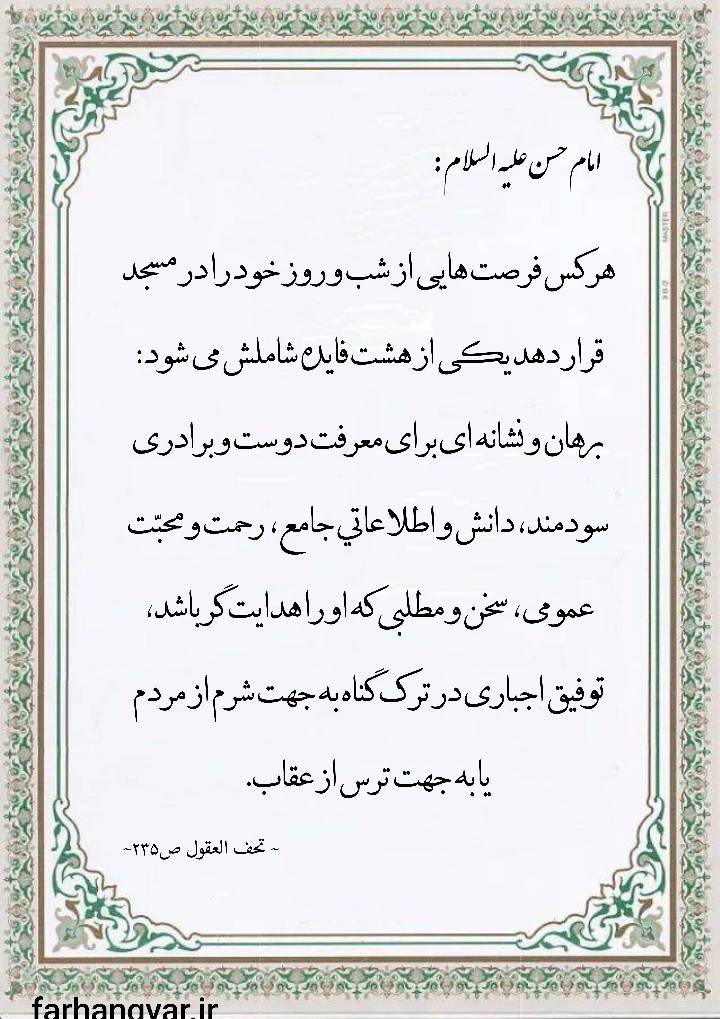 امام حسن علیه السلام :
هرکس فرصت‌هایی از شب و روز خود را در مسجد
قرار دهد یکی از هشت فایده شاملش می شود:
برهان و نشانه ای برای معرفت دوست و برادری
سودمند، دانش و اطلاعاتي جامع، رحمت و محبّت
عمومی، سخن و مطلبی که او را هدایت‌گر باشد،
توفیق اجباری در ترک گناه به جهت شرم از مردم
یا به جهت ترس از عقاب.
~ تحف العقول ص۲۳۵~
MASTER
farhangvar.ir